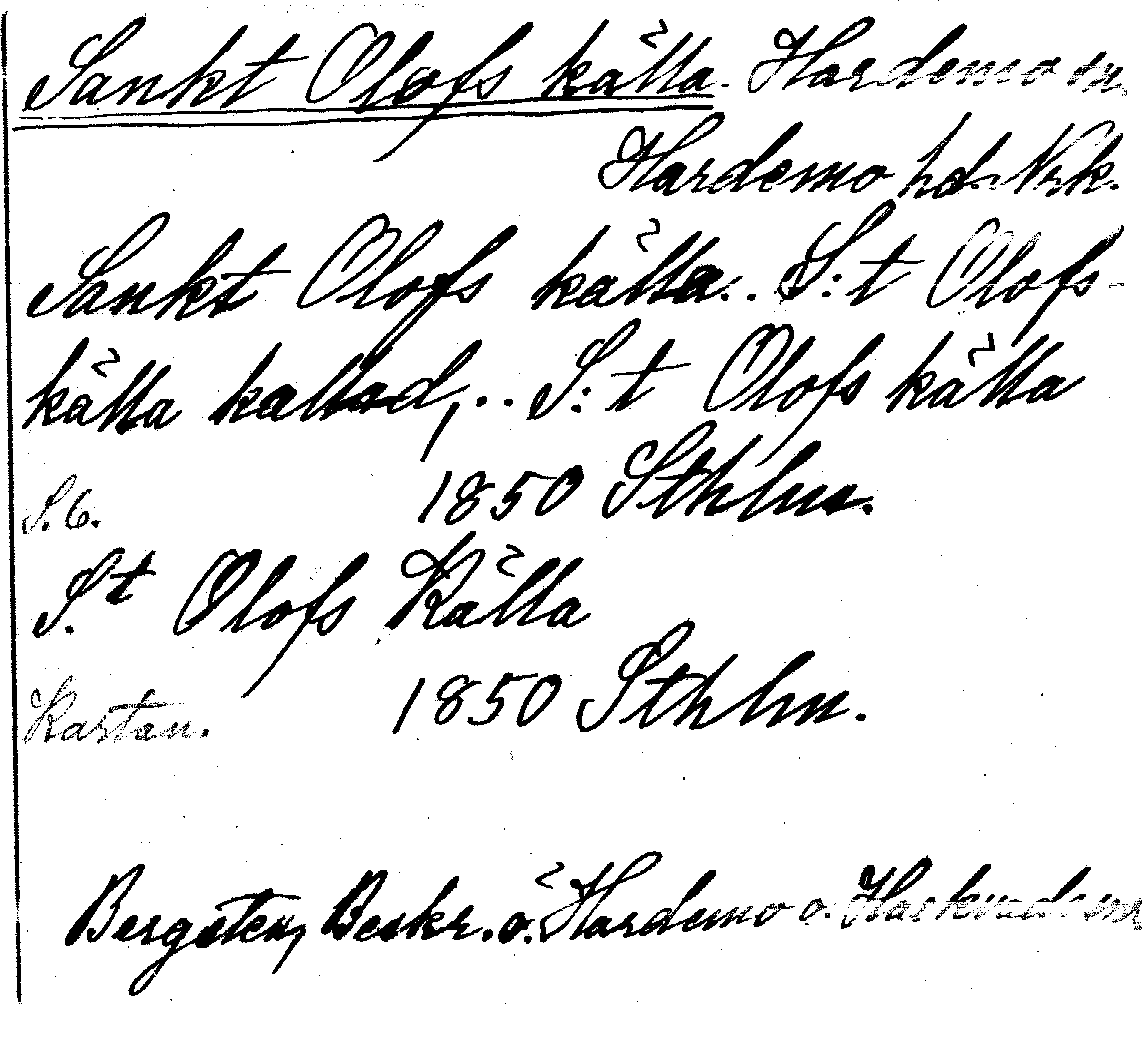 Sankt Olofs källa. Hardemo sn,
Hardemo hd. Nrk.
Sankt Olofs källa... S:t Olofs-
källa kallad,.. S:t Olofs källa
S.6. 1850 Sthlm.
S.t Olofs Källa
Kartan. 1850 Sthlm.
Bergsten, Beskr. ö. Hardemo o. Hackvads snr